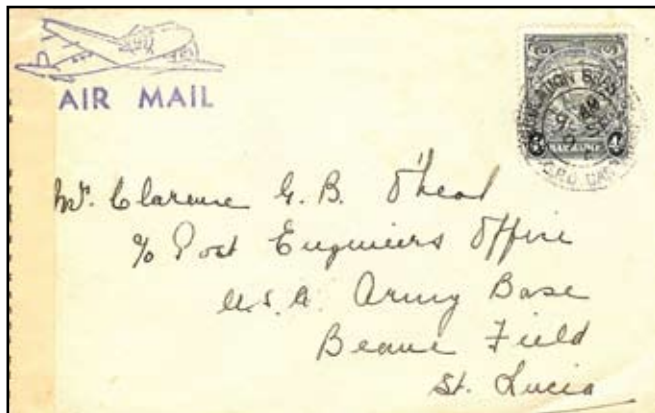 AIR MAIL
BARBADOS
4d
Mr. Clarence G. B. O'Neal
c/o Post Engineers Office
U.S.A. Army Base
Beane Field
St. Lucia